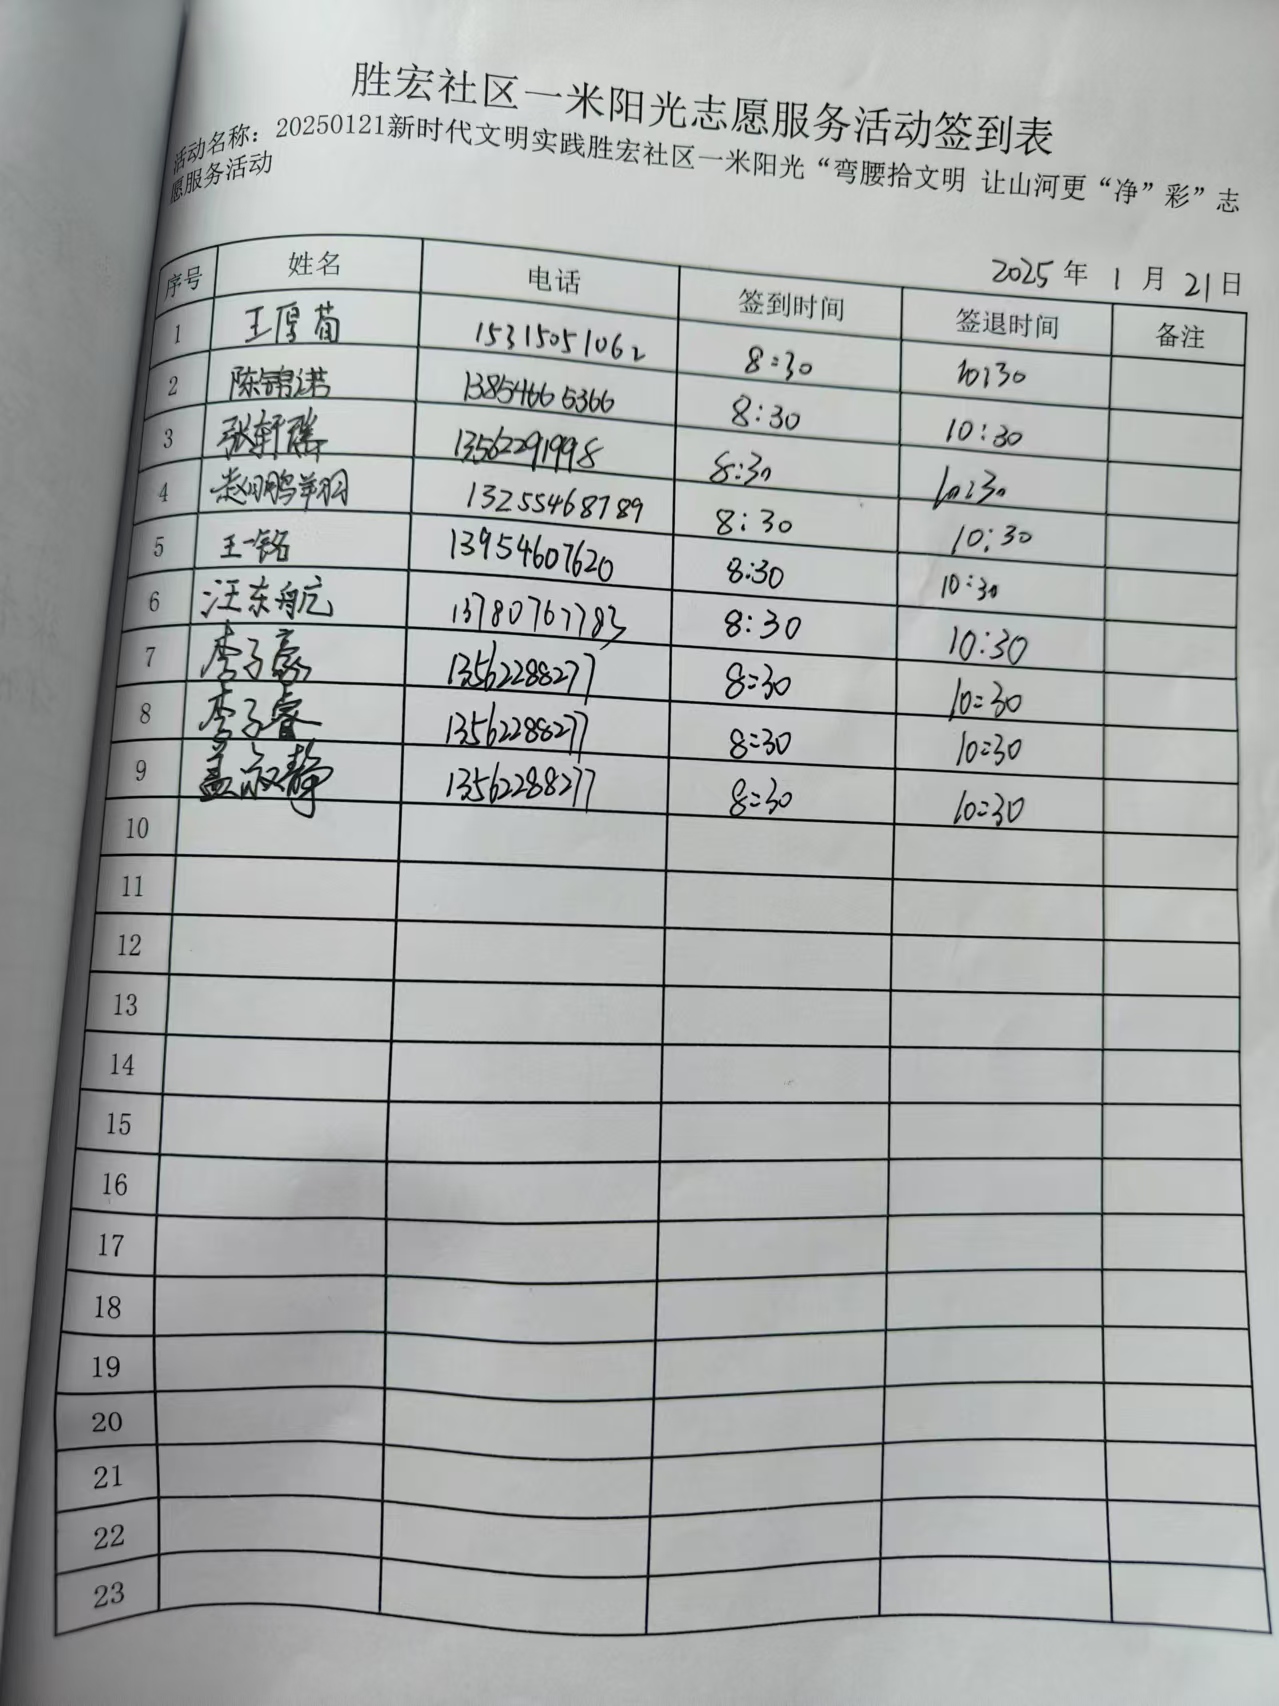 胜宏社区一米阳光志愿服务活动签到表
活动名称：20250121新时代文明实践胜宏社区一米阳光“弯腰拾文明 让山河更“净”彩”志
愿服务活动
2025 年 1 月 21 日
序号 姓名 电话 签到时间 签退时间 备注
1 王厚荀 15315051062 8:30 10:30
2 陈锦诺 13854665366 8:30 10:30
3 张轩瑞 13562291998 8:30 10:30
4 13255468789 8:30 10:30
5 王一铭 13954607620 8:30 10:30
6 汪东航 13780767783 8:30 10:30
7 李子豪 13562288277 8:30 10:30
8 李子睿 13562288277 8:30 10:30
9 盖淑静 13562288277 8:30 10:30
10
11
12
13
14
15
16
17
18
19
20
21
22
23